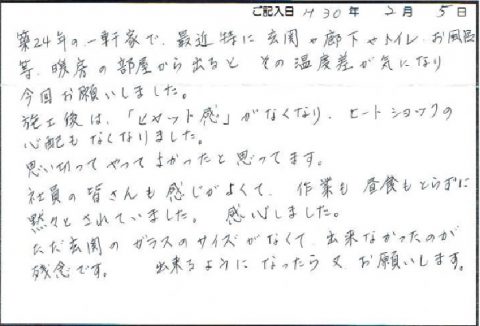 ご記入日 H30年 2月 5日
築24年の一軒家で、最近特に玄関や廊下やトイレ、お風呂
等、暖房の部屋から出ると その温度差が気になり
今回お願いしました。
施工後は、「ヒヤット感」がなくなり、ヒートショックの
心配もなくなりました。
思い切ってやってよかったと思ってます。
社員の皆さんも感じがよくて、作業も昼食もとらずに
黙々とされていました。 感心しました。
ただ玄関のガラスのサイズがなくて、出来なかったのが
残念です。 出来るようになったら又、お願いします。